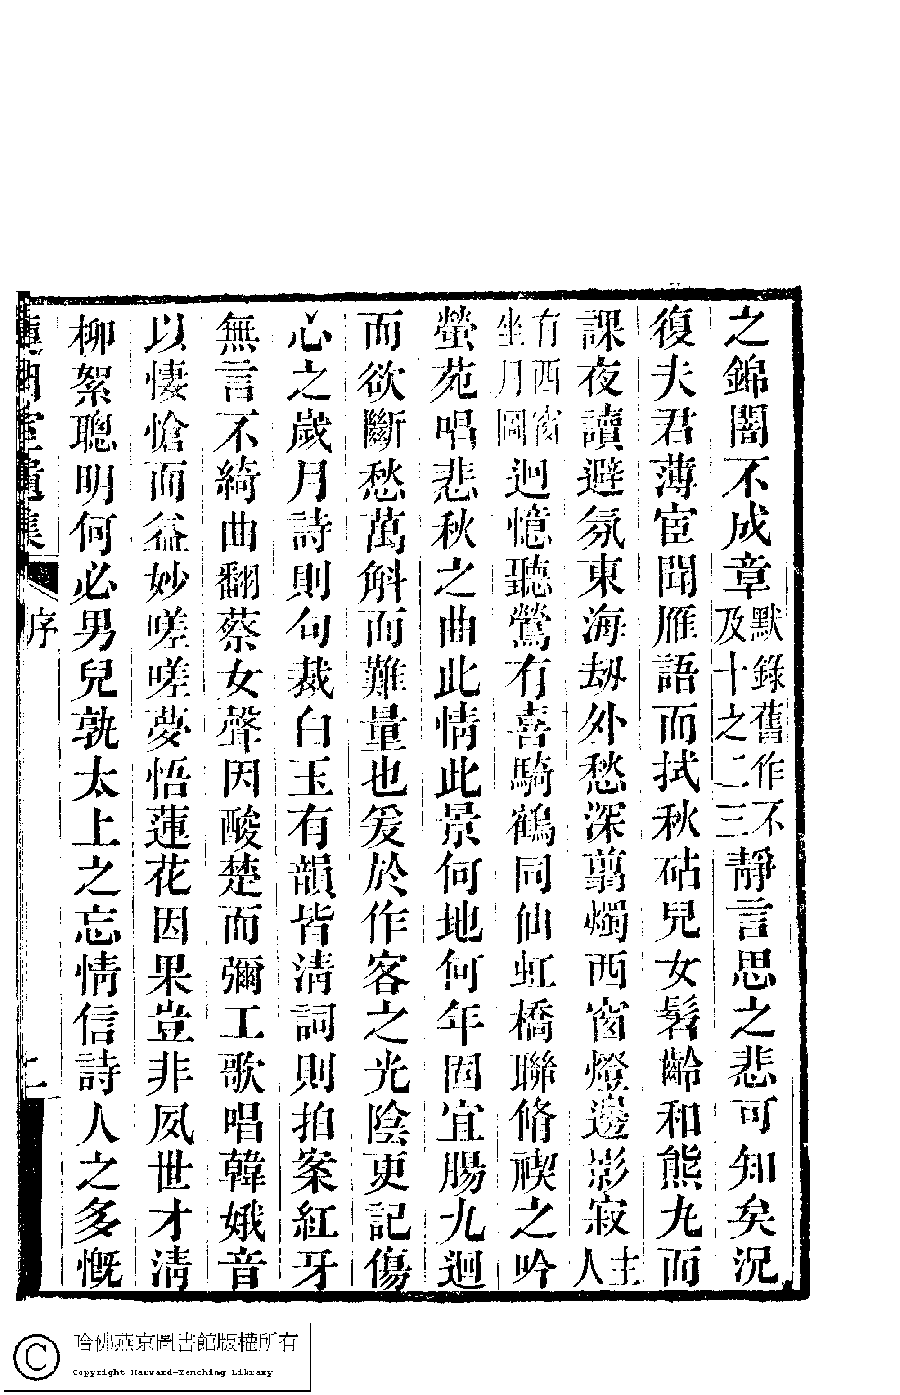 之錦闇不成章默錄舊作不及十之二三靜言思之悲可知矣況
復夫君薄宦聞雁語而拭秋砧兒女髫齡和熊九而
課夜讀避氛東海刼外愁深翦燭西窗燈邊影寂主人
有西窗坐月圖迴憶聽鶯有喜騎鶴同仙虹橋聯脩禊之吟
螢苑唱悲秋之曲此情此景何地何年固宜腸九迴
而欲斷愁萬斛而難量也爰於作客之光陰更記傷
心之歲月詩則句裁白玉有韻皆清詞則拍案紅牙
無言不綺曲翻蔡女聲因酸楚而彌工歌唱韓娥音
以悽愴而益妙嗟嗟夢悟蓮花因果豈非夙世才清
柳絮聰明何必男兒孰太上之忘情信詩人之多慨
室遺集
序
二
哈佛燕京圖書館版權所有
Copyright Harvard-Yenching Library